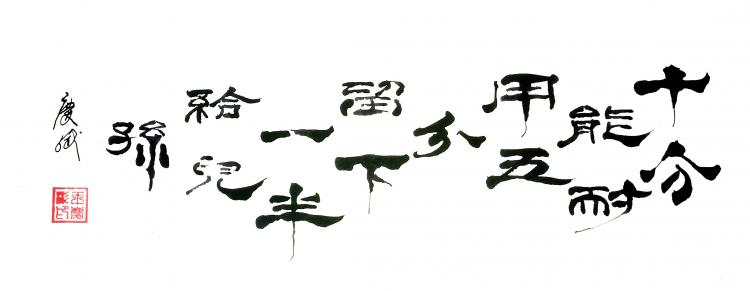 十分
能耐
用五
分
留下
一半
給兒
孫